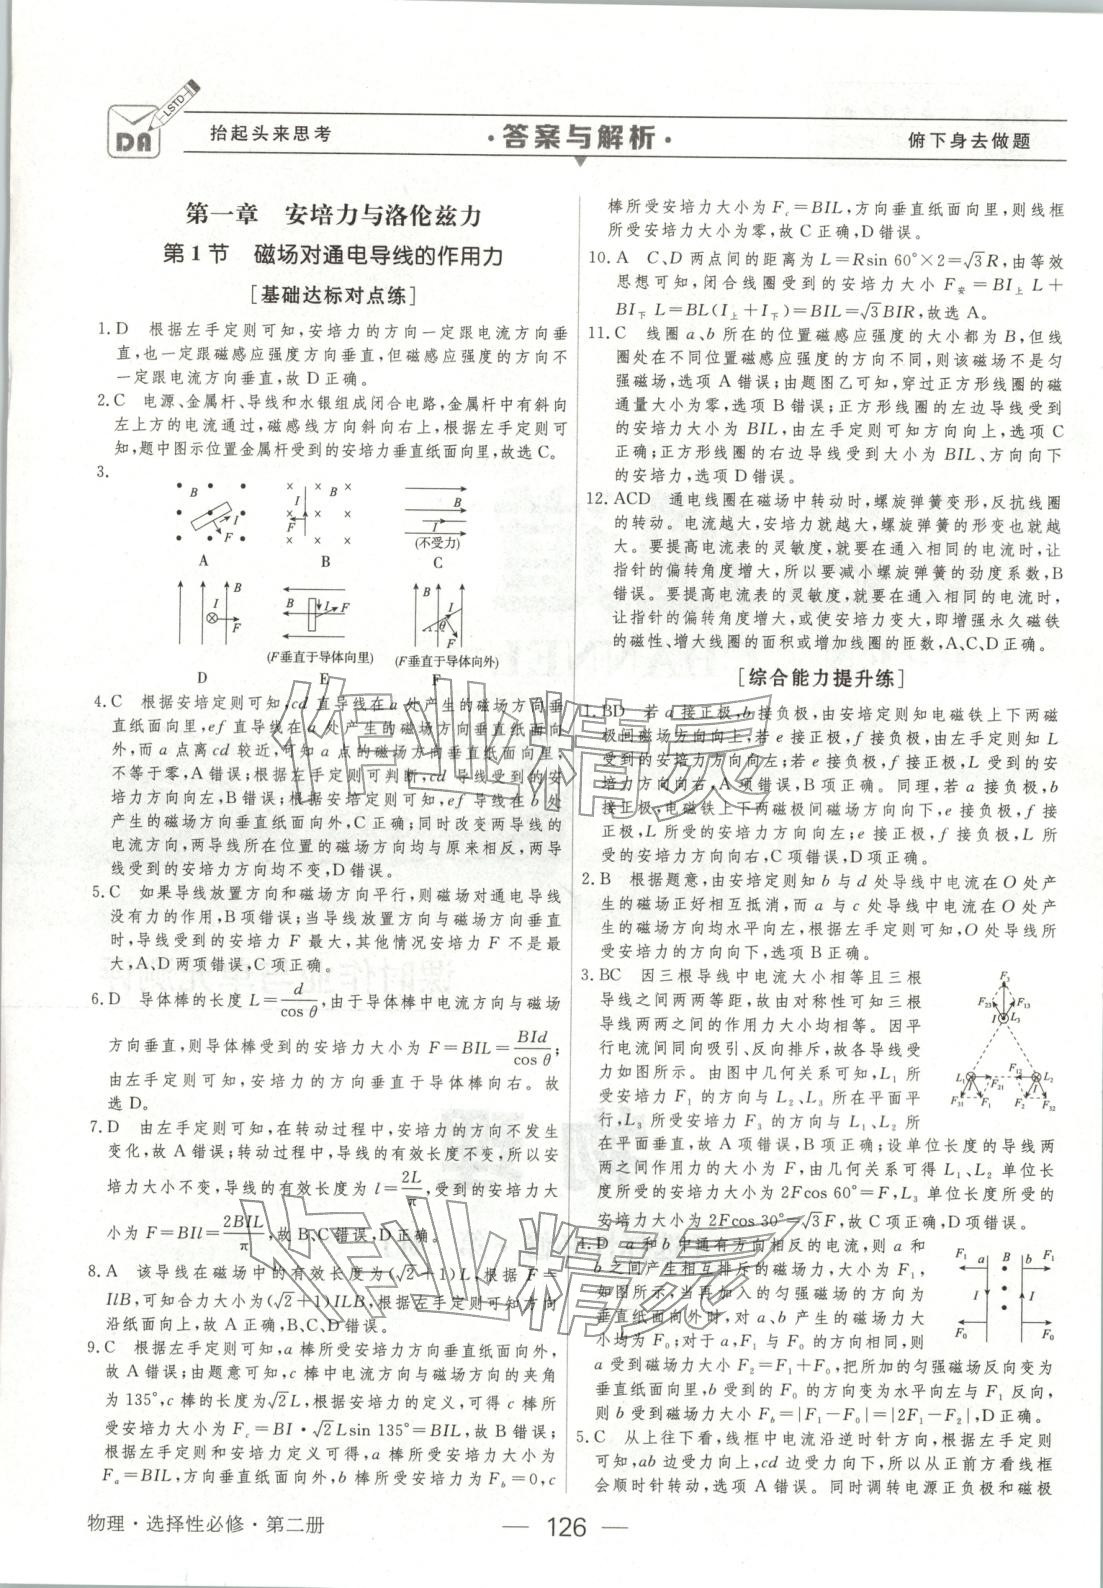 抬起头来思考
·答案与解析·
俯下身去做题
LSTD
DA
第一章 安培力与洛伦兹力
第1节 磁场对通电导线的作用力
[基础达标对点练]
1.D 根据左手定则可知,安培力的方向一定跟电流方向垂
直,也一定跟磁感应强度方向垂直,但磁感应强度的方向不
一定跟电流方向垂直,故D正确。
2.C 电源、金属杆、导线和水银组成闭合电路,金属杆中有斜向
左上方的电流通过,磁感线方向斜向右上,根据左手定则可
知,题中图示位置金属杆受到的安培力垂直纸面向里,故选C。
3.
B I F
A
B I F
B
B I
(不受力)
C
B I F
D
B I F
(F垂直于导体向里)
E
B I θ F
(F垂直于导体向外)
F
4.C 根据安培定则可知,cd直导线在a处产生的磁场方向垂
直纸面向里,ef直导线在a处产生的磁场方向垂直纸面向
外,而a点离cd较近,可知a点的磁场方向垂直纸面向里,
不等于零,A错误;根据左手定则可判断,cd导线受到的安
培力方向向左,B错误;根据安培定则可知,ef导线在b处
产生的磁场方向垂直纸面向外,C正确;同时改变两导线的
电流方向,两导线所在位置的磁场方向均与原来相反,两导
线受到的安培力方向均不变,D错误。
5.C 如果导线放置方向和磁场方向平行,则磁场对通电导线
没有力的作用,B项错误;当导线放置方向与磁场方向垂直
时,导线受到的安培力F最大,其他情况安培力F不是最
大,A、D两项错误,C项正确。
6.D 导体棒的长度L=d/cos θ,由于导体棒中电流方向与磁场
方向垂直,则导体棒受到的安培力大小为F=BIL=BId/cos θ;
由左手定则可知,安培力的方向垂直于导体棒向右。故
选D。
7.D 由左手定则可知,在转动过程中,安培力的方向不发生
变化,故A错误;转动过程中,导线的有效长度不变,所以安
培力大小不变,导线的有效长度为l=2L/π,受到的安培力大
小为F=BIl=2BIL/π,故B、C错误,D正确。
8.A 该导线在磁场中的有效长度为(√2+1)L,根据F=
IlB,可知合力大小为(√2+1)ILB,根据左手定则可知方向
沿纸面向上,故A正确,B、C、D错误。
9.C 根据左手定则可知,a棒所受安培力方向垂直纸面向外,
故A错误;由题意可知,c棒中电流方向与磁场方向的夹角
为135°,c棒的长度为√2L,根据安培力的定义,可得c棒所
受安培力大小为Fc=BI·√2Lsin 135°=BIL,故B错误;
根据左手定则和安培力定义可得,a棒所受安培力大小为
Fa=BIL,方向垂直纸面向外,b棒所受安培力为Fb=0,c
棒所受安培力大小为Fc=BIL,方向垂直纸面向里,则线框
所受安培力大小为零,故C正确,D错误。
10.A C、D两点间的距离为L=Rsin 60°×2=√3R,由等效
思想可知,闭合线圈受到的安培力大小F安=BI上L+
BI下L=BL(I上+I下)=BIL=√3BIR,故选A。
11.C 线圈a、b所在的位置磁感应强度的大小都为B,但线
圈处在不同位置磁感应强度的方向不同,则该磁场不是匀
强磁场,选项A错误;由题图乙可知,穿过正方形线圈的磁
通量大小为零,选项B错误;正方形线圈的左边导线受到
的安培力大小为BIL,由左手定则可知方向向上,选项C
正确;正方形线圈的右边导线受到大小为BIL、方向向下
的安培力,选项D错误。
12.ACD 通电线圈在磁场中转动时,螺旋弹簧变形,反抗线圈
的转动。电流越大,安培力就越大,螺旋弹簧的形变也就越
大。要提高电流表的灵敏度,就要在通入相同的电流时,让
指针的偏转角度增大,所以要减小螺旋弹簧的劲度系数,B
错误。要提高电流表的灵敏度,就要在通入相同的电流时,
让指针的偏转角度增大,或使安培力变大,即增强永久磁铁
的磁性、增大线圈的面积或增加线圈的匝数,A、C、D正确。
[综合能力提升练]
1.BD 若a接正极,b接负极,由安培定则知电磁铁上下两磁
极间磁场方向向上,若e接正极,f接负极,由左手定则知L
受到的安培力方向向左;若e接负极,f接正极,L受到的安
培力方向向右,A项错误,B项正确。同理,若a接负极,b
接正极,电磁铁上下两磁极间磁场方向向下,e接负极,f接
正极,L所受的安培力方向向左;e接正极,f接负极,L所
受的安培力方向向右,C项错误,D项正确。
2.B 根据题意,由安培定则知b与d处导线中电流在O处产
生的磁场正好相互抵消,而a与c处导线中电流在O处产
生的磁场方向均水平向左,根据左手定则可知,O处导线所
受安培力的方向向下,选项B正确。
3.BC 因三根导线中电流大小相等且三根
导线之间两两等距,故由对称性可知三根
导线两两之间的作用力大小均相等。因平
行电流间同向吸引、反向排斥,故各导线受
力如图所示。由图中几何关系可知,L1所
受安培力F1的方向与L2、L3所在平面平
行,L3所受安培力F3的方向与L1、L2所
在平面垂直,故A项错误,B项正确;设单位长度的导线两
两之间作用力的大小为F,由几何关系可得L1、L2单位
长度所受的安培力大小为2Fcos 60°=F,L3单位长度所受的
安培力大小为2Fcos 30°=√3F,故C项正确,D项错误。
F3 F23 F13 I L3
L1 F21 F12 L2
F31 F1 F2 F32
4.D a和b中通有方向相反的电流,则a和
b之间产生相互排斥的磁场力,大小为F1,
如图所示,当再加入的匀强磁场的方向为
垂直纸面向外时,对a、b产生的磁场力大
小均为F0;对于a,F1与F0的方向相同,则
a受到磁场力大小F2=F1+F0,把所加的匀强磁场反向变为
垂直纸面向里,b受到的F0的方向变为水平向左与F1反向,
则b受到磁场力大小Fb=|F1-F0|=|2F1-F2|,D正确。
F1 a B b F1
I I
F0 F0
5.C 从上往下看,线框中电流沿逆时针方向,根据左手定则
可知,ab边受力向上,cd边受力向下,所以从正前方看线框
会顺时针转动,选项A错误。同时调转电源正负极和磁极
物理·选择性必修·第二册
— 126 —
作业精灵
作业精灵